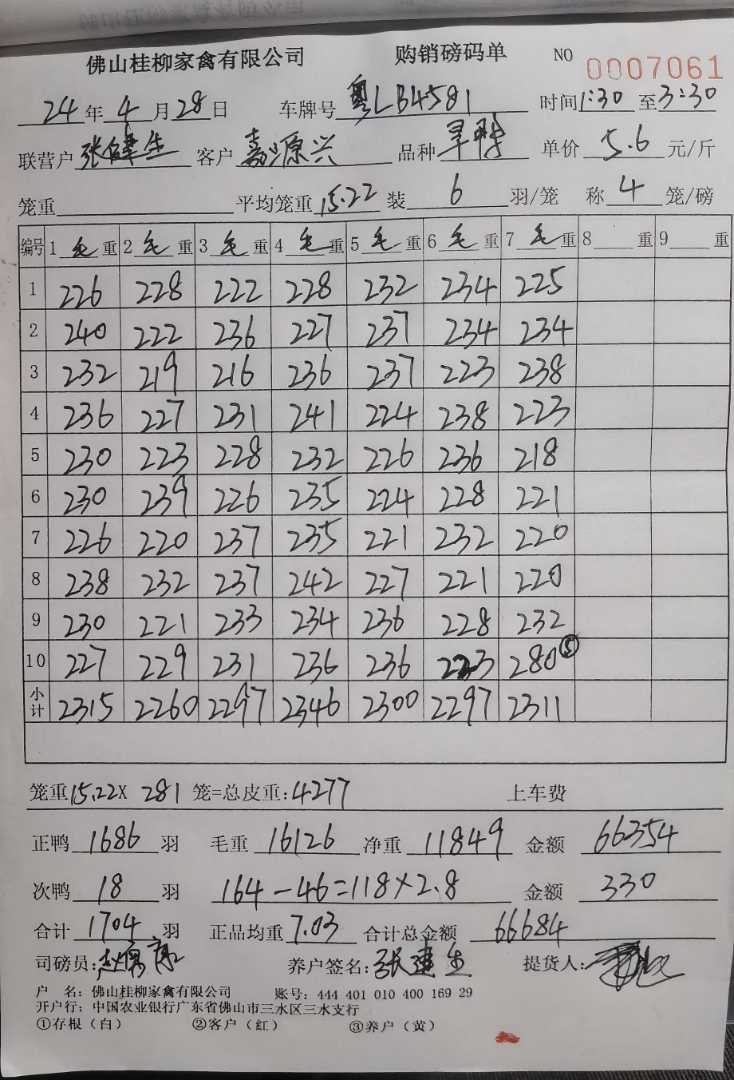 佛山桂柳家禽有限公司 购销磅码单 NO 0007061
24年4月28日 车牌号 粤LB4581 时间1:30至3:30
联营户 张健生 客户 嘉源兴 品种 单价 5.6 元/斤
笼重 平均笼重 15.22 装 6 羽/笼 称 4 笼/磅
编号 1 毛 重 2 毛 重 3 毛 重 4 毛 重 5 毛 重 6 毛 重 7 毛 重 8 重 9 重
1 226 228 222 228 232 234 225
2 240 222 236 227 237 234 234
3 232 219 216 236 237 223 238
4 236 227 231 241 224 238 223
5 230 223 228 232 226 236 218
6 230 239 226 235 224 228 221
7 226 220 237 235 221 232 220
8 238 232 237 242 227 221 220
9 230 221 233 234 236 228 232
10 227 229 231 236 236 223 280⑤
小计 2315 2260 2297 2346 2300 2297 2311
笼重15.22× 281 笼=总皮重:4277 上车费
正鸭 1686 羽 毛重 16126 净重 11849 金额 66354
次鸭 18 羽 164-46=118×2.8 金额 330
合计 1704 羽 正品均重 7.03 合计总金额 66684
司磅员: 养户签名:张建生 提货人:
户 名:佛山桂柳家禽有限公司 账号: 444 401 010 400 169 29
开户行:中国农业银行广东省佛山市三水区三水支行
①存根(白) ②客户(红) ③养户(黄)